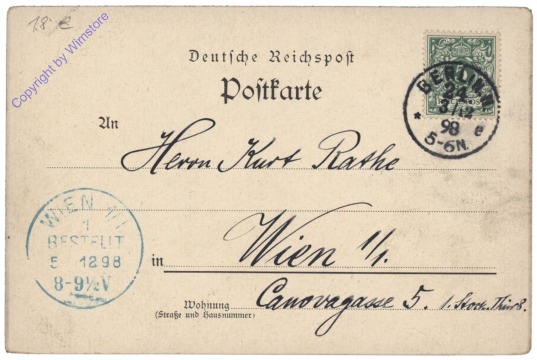 18 €
Copyright by Wimstore
Deutsche Reichspost
Postkarte
BERLIN,N.
24
3/12
98 e
5-6N.
An
Herrn Kurt Rathe
WIEN 1/1
1
BESTELLT
5 12 98
8-9½V
in
Wien 1/1.
Wohnung
(Straße und Hausnummer)
Canovagasse 5. 1. Stock. Thür 8.